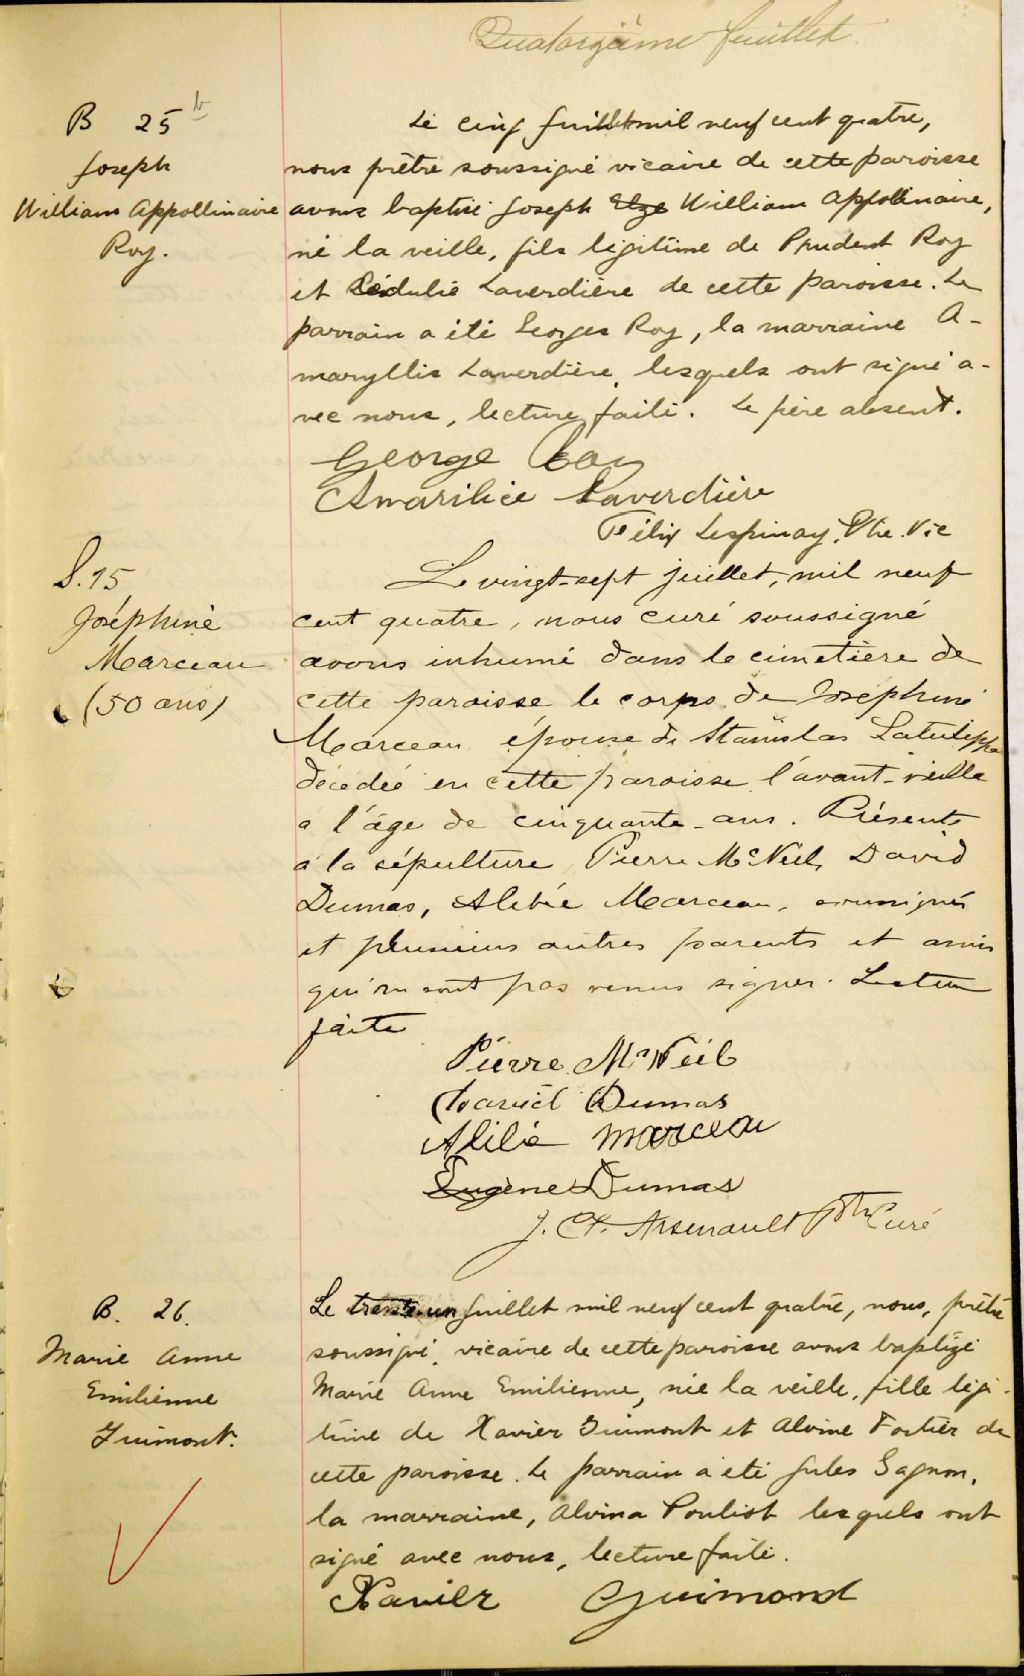 Quatorzième feuillet.
B 25
Joseph
William Appollinaire
Roy.
Le cinq juillet mil neuf cent quatre,
nous prêtre soussigné vicaire de cette paroisse
avons baptisé Joseph William Appollinaire,
né la veille, fils légitime de Prudent Roy
et Laverdière de cette paroisse. Le
parrain a été Georges Roy, la marraine A-
maryllis Laverdière, lesquels ont signé a-
vec nous, lecture faite. Le père absent.
George Roy
Amarilice Laverdière
Félix Lespinay, Ptre. Vic
S. 15
Joséphine
Marceau
(50 ans)
Le vingt-sept juillet, mil neuf
cent quatre, nous curé soussigné
avons inhumé dans le cimetière de
cette paroisse le corps de Joséphine
Marceau épouse de Stanislas Latulippe
décédée en cette paroisse l'avant-veille
a l'âge de cinquante-ans. Présents
à la sépulture Pierre McNeil, David
Dumas, Marceau, soussignés
et plusieurs autres parents et amis
qui ne sont pas venus signer. Lecture
faite
Pierre McNeil
David Dumas
Marceau
Eugène Dumas
J. Arsenault Ptre Curé
B. 26.
Marie Anne
Emilienne
Guimont.
Le trente-un juillet mil neuf cent quatre, nous, prêtre
soussigné, vicaire de cette paroisse avons baptizé
Marie Anne Emilienne, née la veille, fille légi-
time de Xavier Guimont et Alvine Fortier de
cette paroisse. Le parrain a été Jules Gagnon,
la marraine, Alvina Pouliot lesquels ont
signé avec nous, lecture faite.
Xavier Guimond